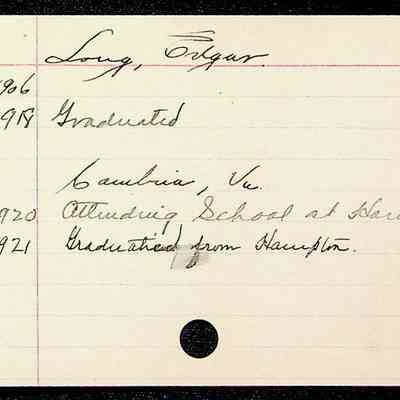 Long, Edgar.
906
918 Graduated
Cambria, Va.
920 Attending School at Ham
921 Graduated from Hampton.